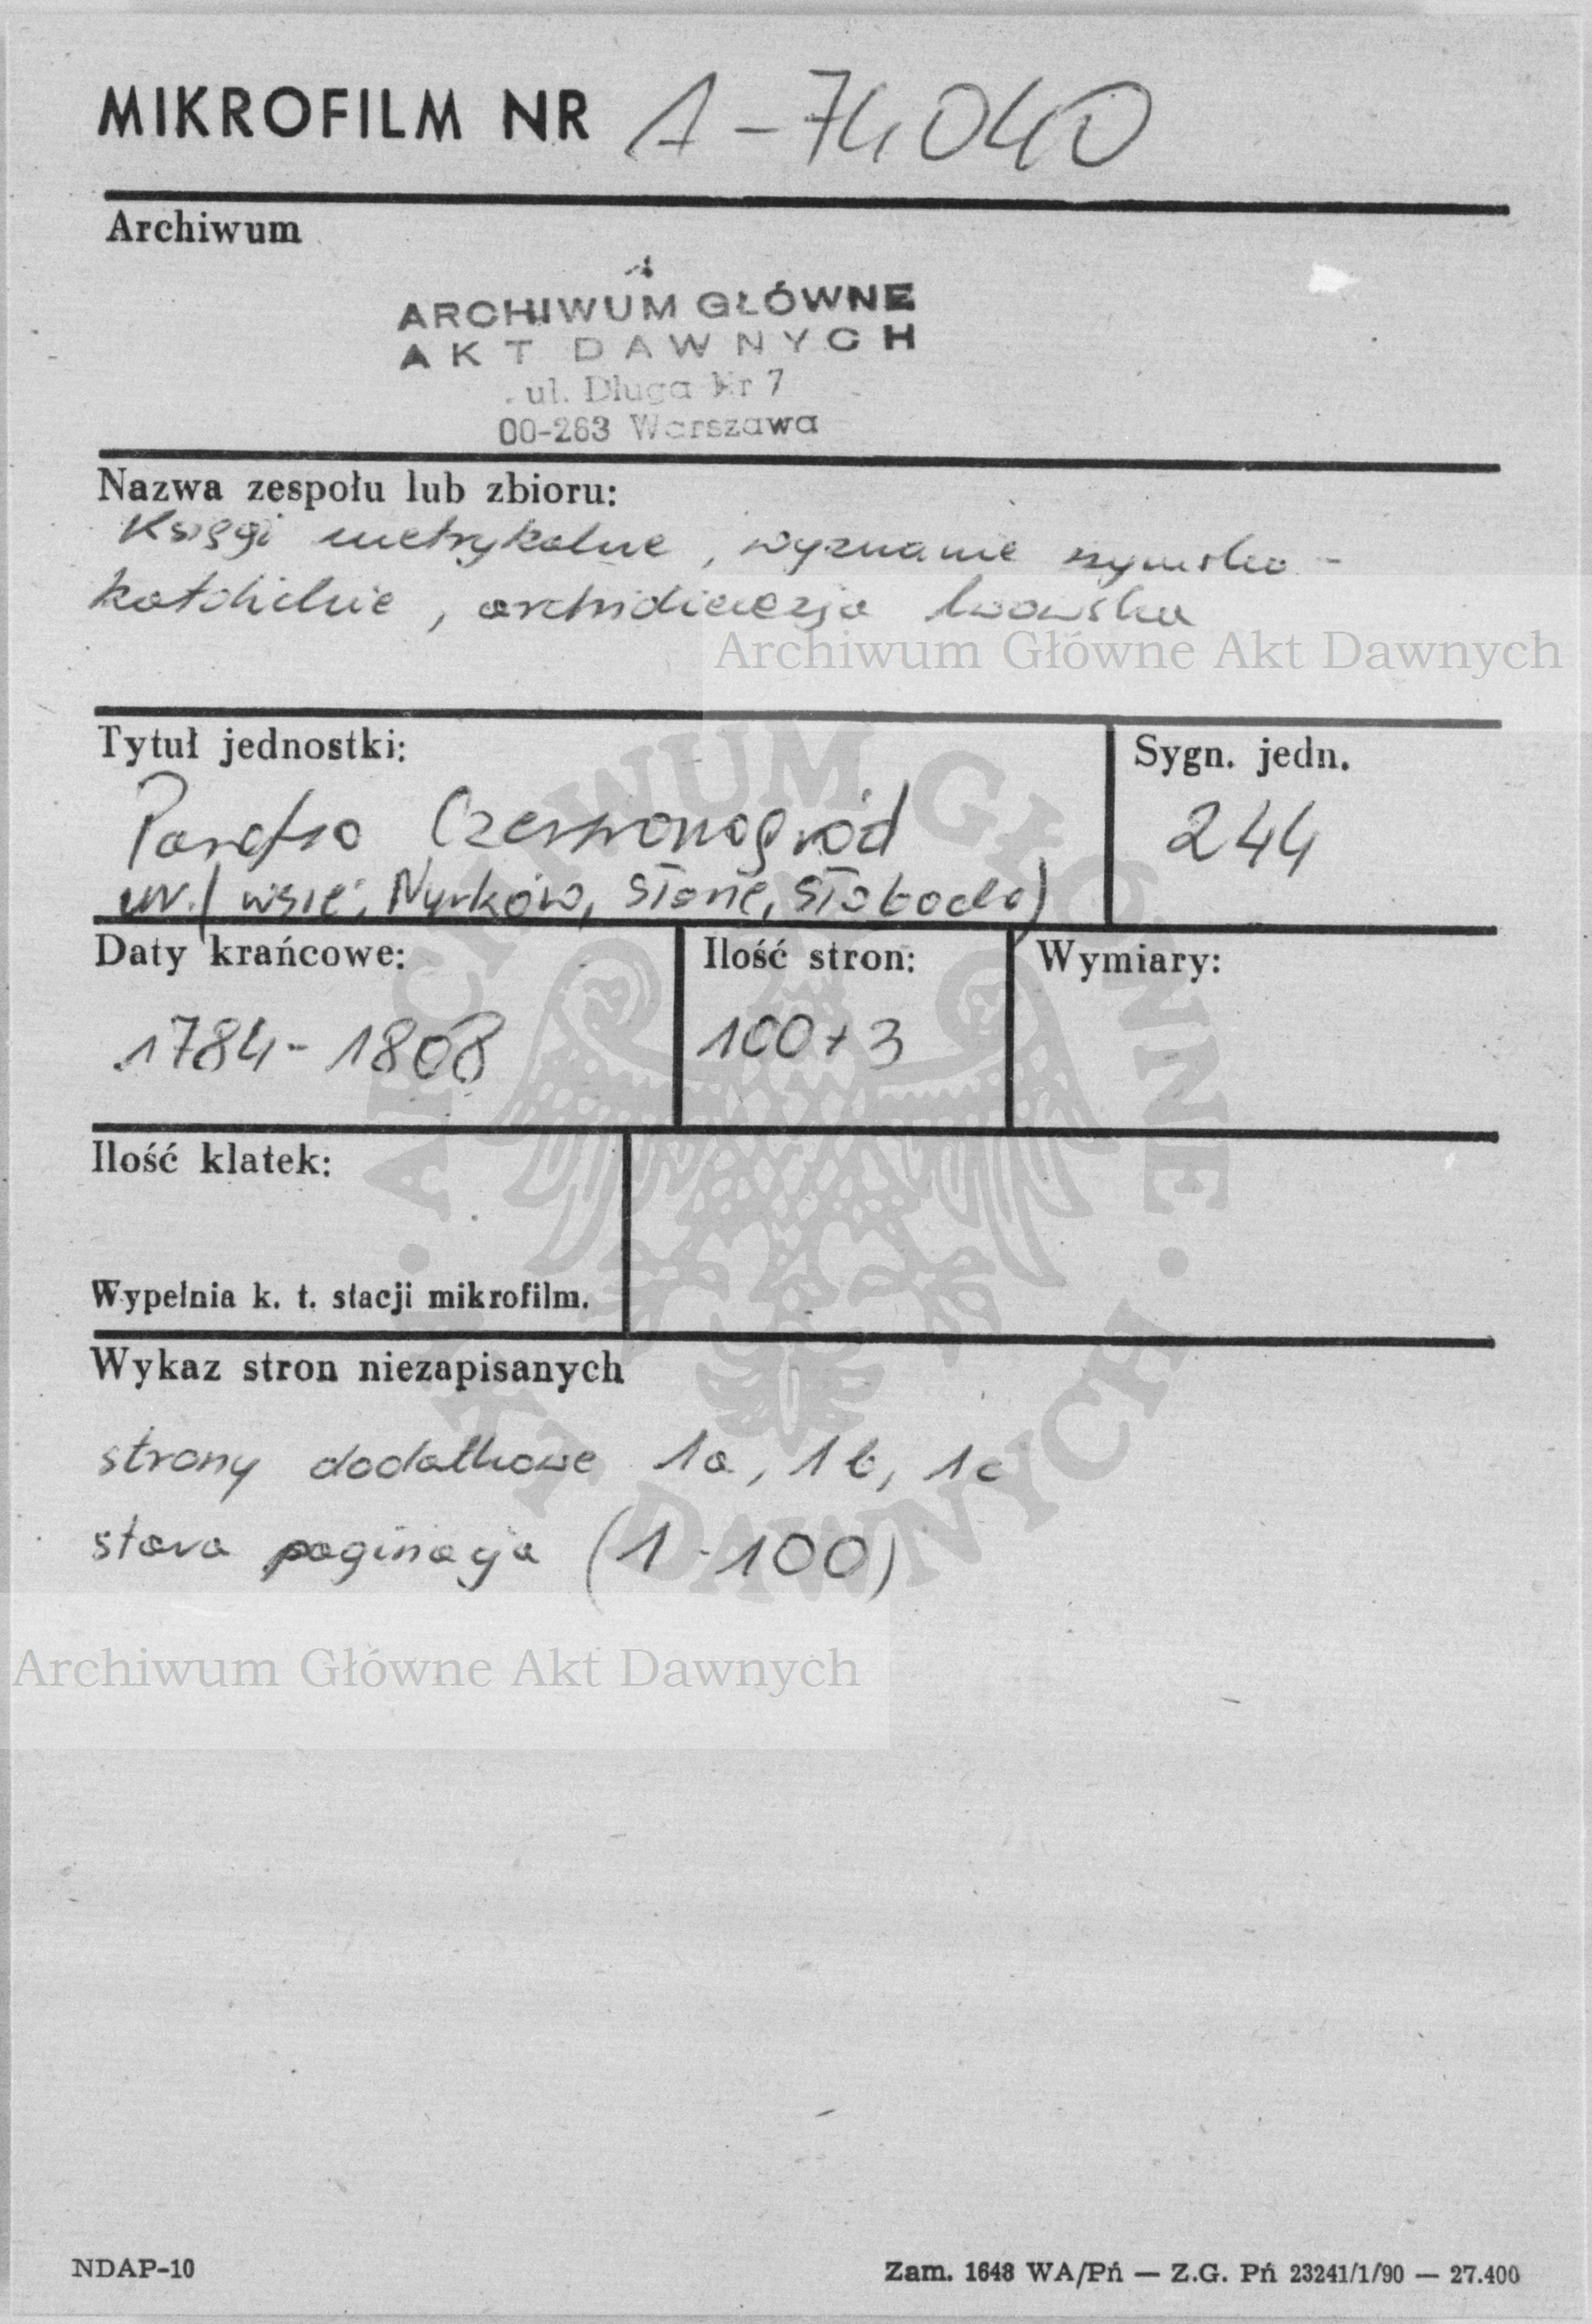 MIKROFILM NR A-74040
Archiwum
ARCHIWUM GŁÓWNE
AKT DAWNYCH
ul. Długa Nr 7
00-263 Warszawa
Nazwa zespołu lub zbioru:
Księgi metrykalne, wyznanie rzymsko-
katolickie, archidiecezja lwowska
Archiwum Główne Akt Dawnych
Tytuł jednostki:
Sygn. jedn.
Parafia Czerwonogród
244
(wsie: Nyrków, Słone, Słoboda)
Daty krańcowe:
Ilość stron:
Wymiary:
1784-1808
100+3
Ilość klatek:
Wypełnia k. t. stacji mikrofilm.
Wykaz stron niezapisanych
strony dodatkowe 1a, 1b, 1c
stara paginacja (1-100)
ARCHIWUM GŁÓWNE · AKT DAWNYCH ·
Archiwum Główne Akt Dawnych
NDAP-10
Zam. 1648 WA/Pń — Z.G. Pń 23241/1/90 — 27.400